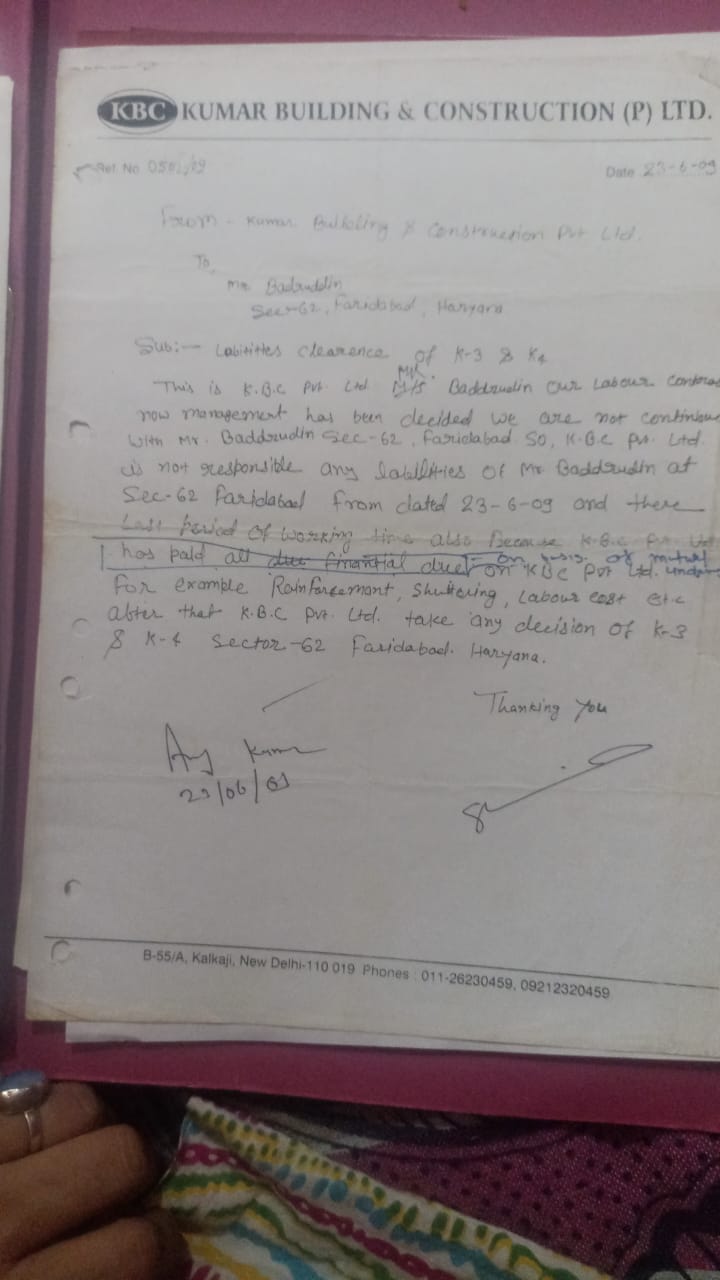 KBC KUMAR BUILDING & CONSTRUCTION (P) LTD.
Ref. No. Date 23-6-09
From - Kumar Building & Construction Pvt Ltd.
To,
Mr. Badruddin
Sec-62, Faridabad, Haryana
Sub:- Labitities clearence of K-3 & K4
This is K.B.C Pvt. Ltd. M/s Mr. Baddrudin our Labour
now management has been decided we are not continue
with Mr. Baddrudin Sec-62, Faridabad So, K.B.C Pvt. Ltd.
is not responsible any of Mr Baddrudin at
Sec-62 Faridabad from dated 23-6-09 and there
Last period of working time also Because K.B.C Pvt. Ltd
has paid all due finantial due on of mutual
on KBC Pvt Ltd.
For example Reinforcemant, Shuttering, Labour cost etc
abter that K.B.C Pvt. Ltd. take any decision of K-3
& K-4 Sector-62 Faridabad. Haryana.
Thanking you
Kumar
B-55/A, Kalkaji, New Delhi-110 019 Phones : 011-26230459, 09212320459